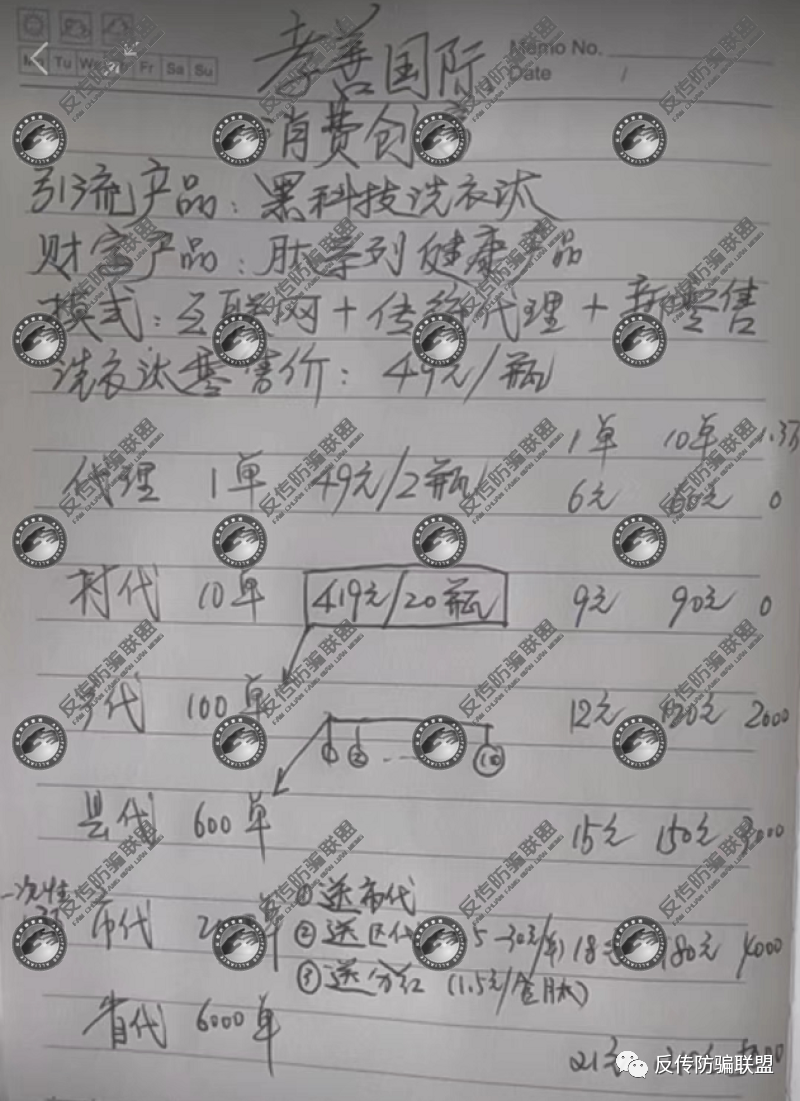 Memo No.
Mo Tu We Th Fr Sa Su
Date /
孝善国际
消费创
引流产品：黑科技洗衣汰
财富产品：肽系列健康产品
模式：互联网+传统代理+新零售
洗衣汰零售价：49元/瓶
1单 10单 1.3万
代理 1单 49元/2瓶 6元 60元 0
村代 10单 419元/20瓶 9元 90元 0
代 100单 12元 120元 2000
② …… ⑩
县代 600单 15元 150元 3000
一次性
① 送市代
市代 单 ② 送区代 5-30元/单) 18元 180元 4000
③ 送分红 (1.5元/盒肽)
省代 6000单
21元
反传防骗联盟
FAN CHUAN FANG PIAN LIAN MENG
反传防骗联盟